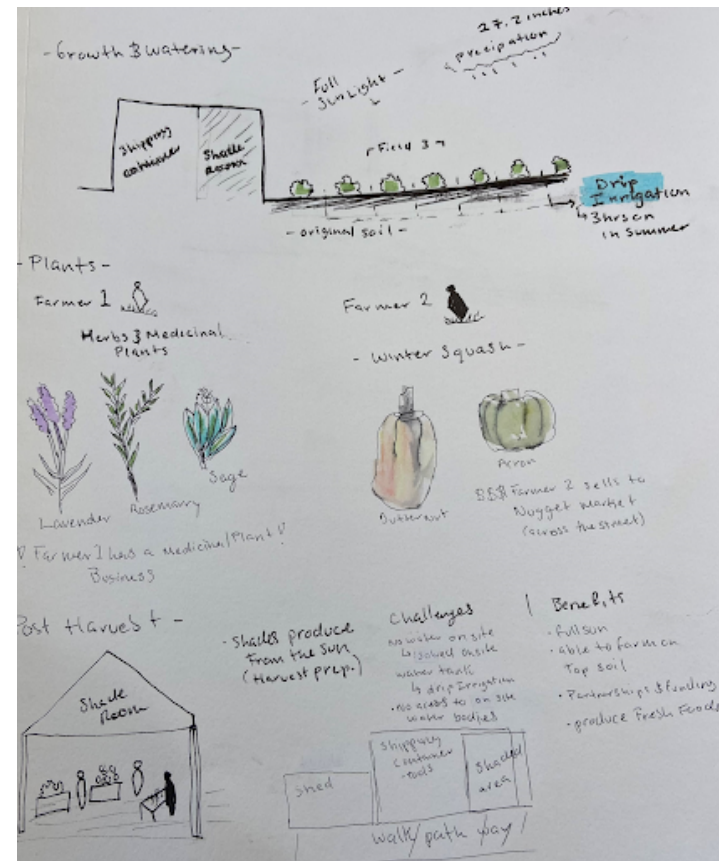 - Growth & Watering -
27.2 inches
precipation
- Full
Sunlight -
Shipping
container
Shade
Room
Field 3
- original soil -
Drip
Irrigation
3hrs on
in summer
- Plants -
Farmer 1
Herbs & Medicinal
Plants
Lavender
Rosemarry
Sage
! Farmer 1 has a Medicinal Plant !
Business
Farmer 2
- Winter Squash -
Butternut
Acron
$$$ Farmer 2 sells to
Nugget market
(across the street)
Post Harvest -
Shade
Room
- Shades produce
from the sun
(Harvest prep.)
Challenges
No water on site
onsite
water tank
drip Irrigation
• No acess to on site
water bodies
Benefits
• full sun
• able to farm on
Top soil
• Partnerships & funding
• produce Fresh Foods
Shed
Shipping
Container
- tools
Shaded
area
walk/path way